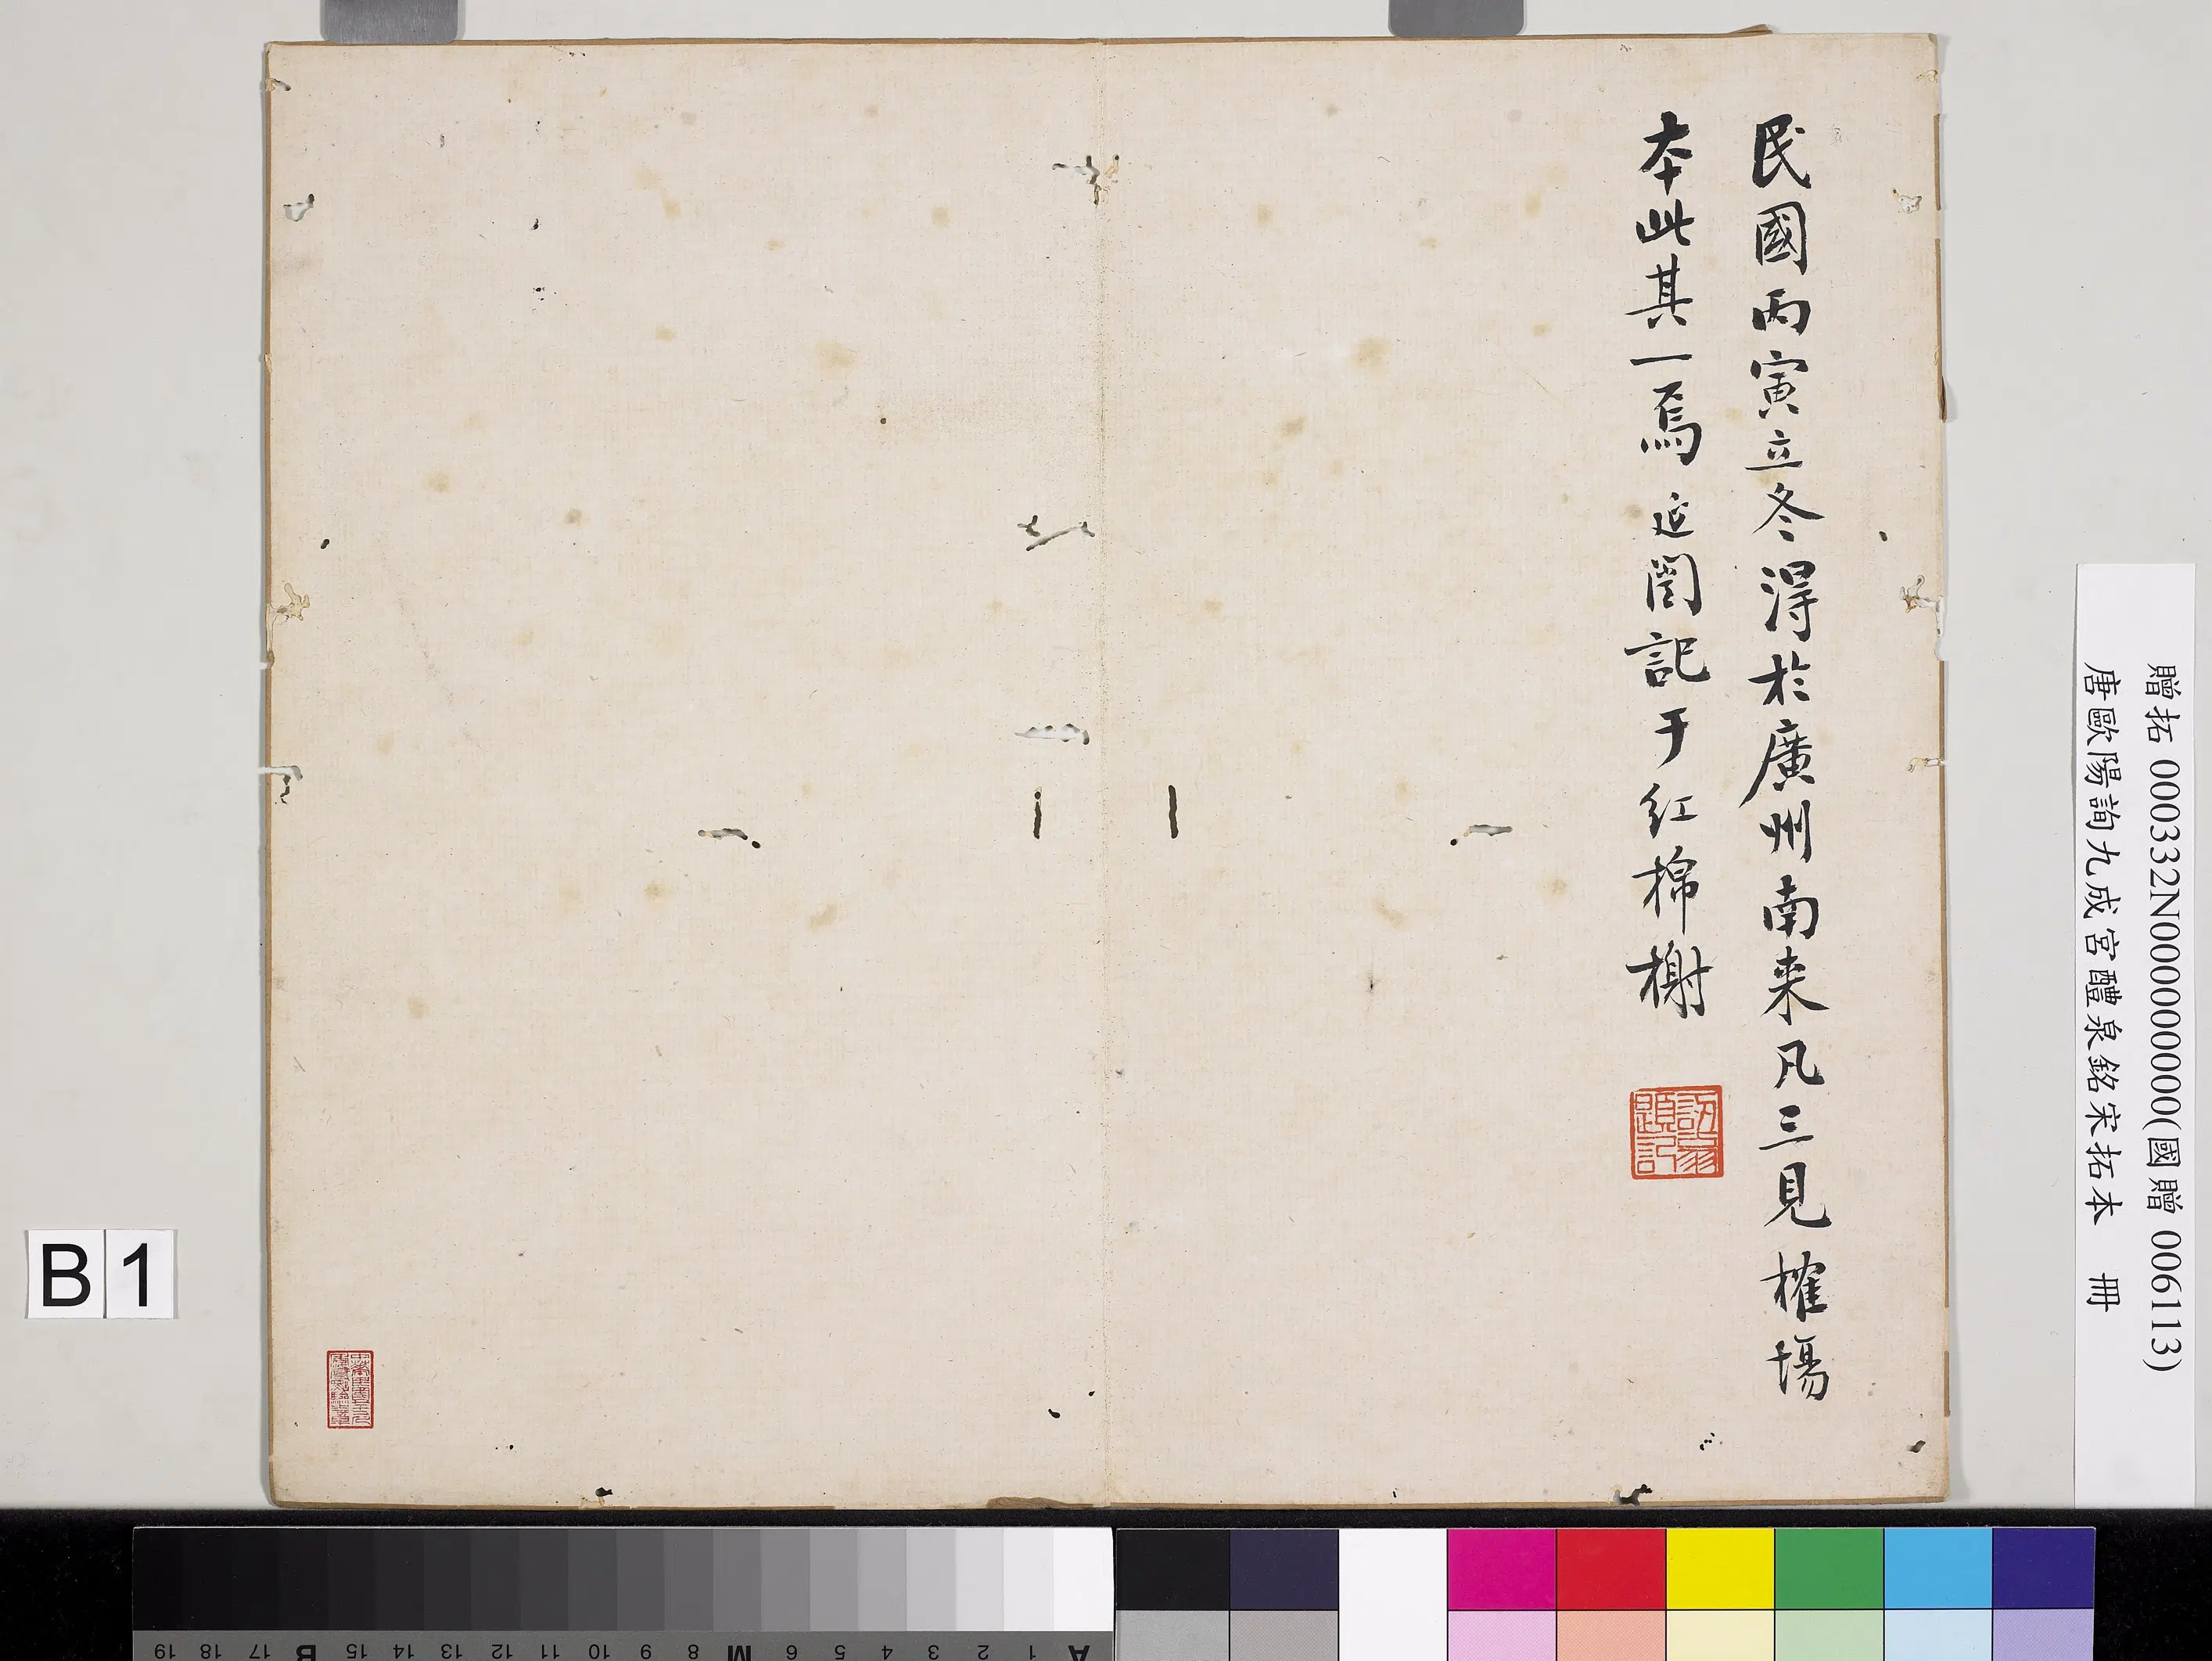 民國丙寅立冬淂於廣州南来凡三見榷場
本此其一焉 延闓記于紅棉榭
訒菴題記
贈拓 000332N000000000(國贈 006113)
唐歐陽詢九成宮醴泉銘宋拓本 冊
B 1
19 18 17 B 15 14 13 12 11 10 9 8 M 6 5 4 3 2 1 A